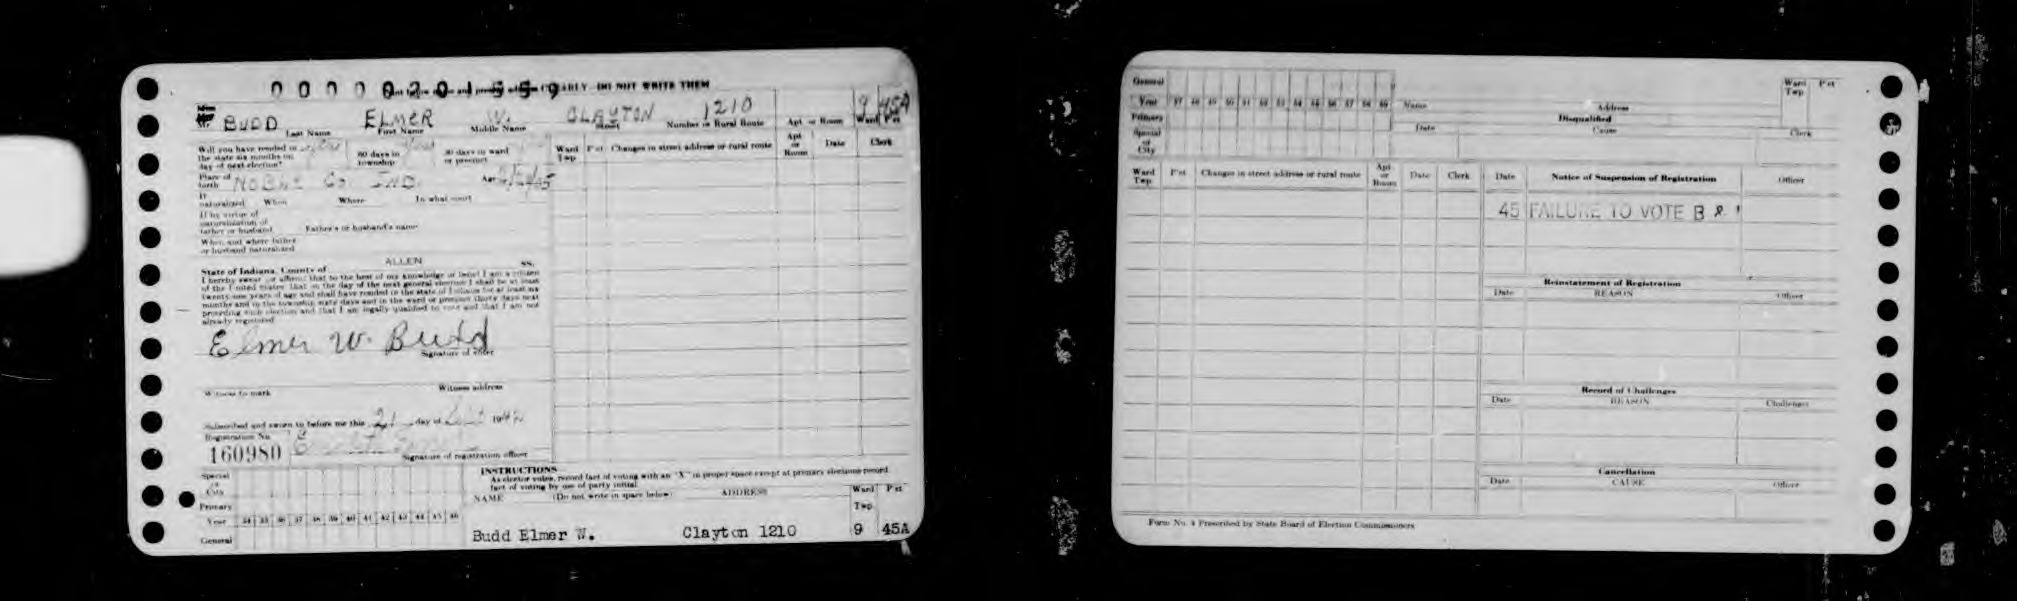 00000201559 ARLY DO NOT WRITE THEM
Mr BUDD ELMER W. CLAYTON 1210 9 45A
Last Name First Name Middle Name Street Number or Rural Route Apt or Room Ward Pct
Will you have resided in
the state six months on
day of next election?
60 days in
township
30 days in ward
or precinct
Ward
Twp
Pct
Changes in street address or rural route
Apt
or
Room
Date
Clerk
Place of
birth NOBLE Co IND. Age
If
naturalized When Where In what court
If by virtue of
naturalization of
father or husband Father's or husband's name
When and where father
or husband naturalized
State of Indiana, County of ALLEN ss.
I hereby swear or affirm that to the best of my knowledge or belief I am a citizen
of the United States that on the day of the next general election I shall be at least
twenty-one years of age and shall have resided in the state of Indiana for at least six
months and in the township sixty days and in the ward or precinct thirty days next
preceding such election and that I am legally qualified to vote and that I am not
already registered
Elmer W. Budd
Signature of voter
Witness to mark Witness address
Subscribed and sworn to before me this 21 day of 1942
Registration No
160980
Signature of registration officer
Special
or
City
Primary
Year 34 35 36 37 38 39 40 41 42 43 44 45 46
General
INSTRUCTIONS
As elector votes, record fact of voting with an "X" in proper space except at primary elections record
fact of voting by use of party initial
NAME (Do not write in space below) ADDRESS Ward Pct
Twp
Budd Elmer W. Clayton 1210 9 45A
General
Year 47 48 49 50 51 52 53 54 55 56 57 58 59
Primary
Special
or
City
Name Address
Ward
Twp
Pct
Disqualified
Date Cause Clerk
Ward
Twp
Pct
Changes in street address or rural route
Apt
or
Room
Date
Clerk
Date Notice of Suspension of Registration Officer
45 FAILURE TO VOTE B &
Reinstatement of Registration
Date REASON Officer
Record of Challenges
Date REASON Challenger
Cancellation
Date CAUSE Officer
Form No. 4 Prescribed by State Board of Election Commissioners